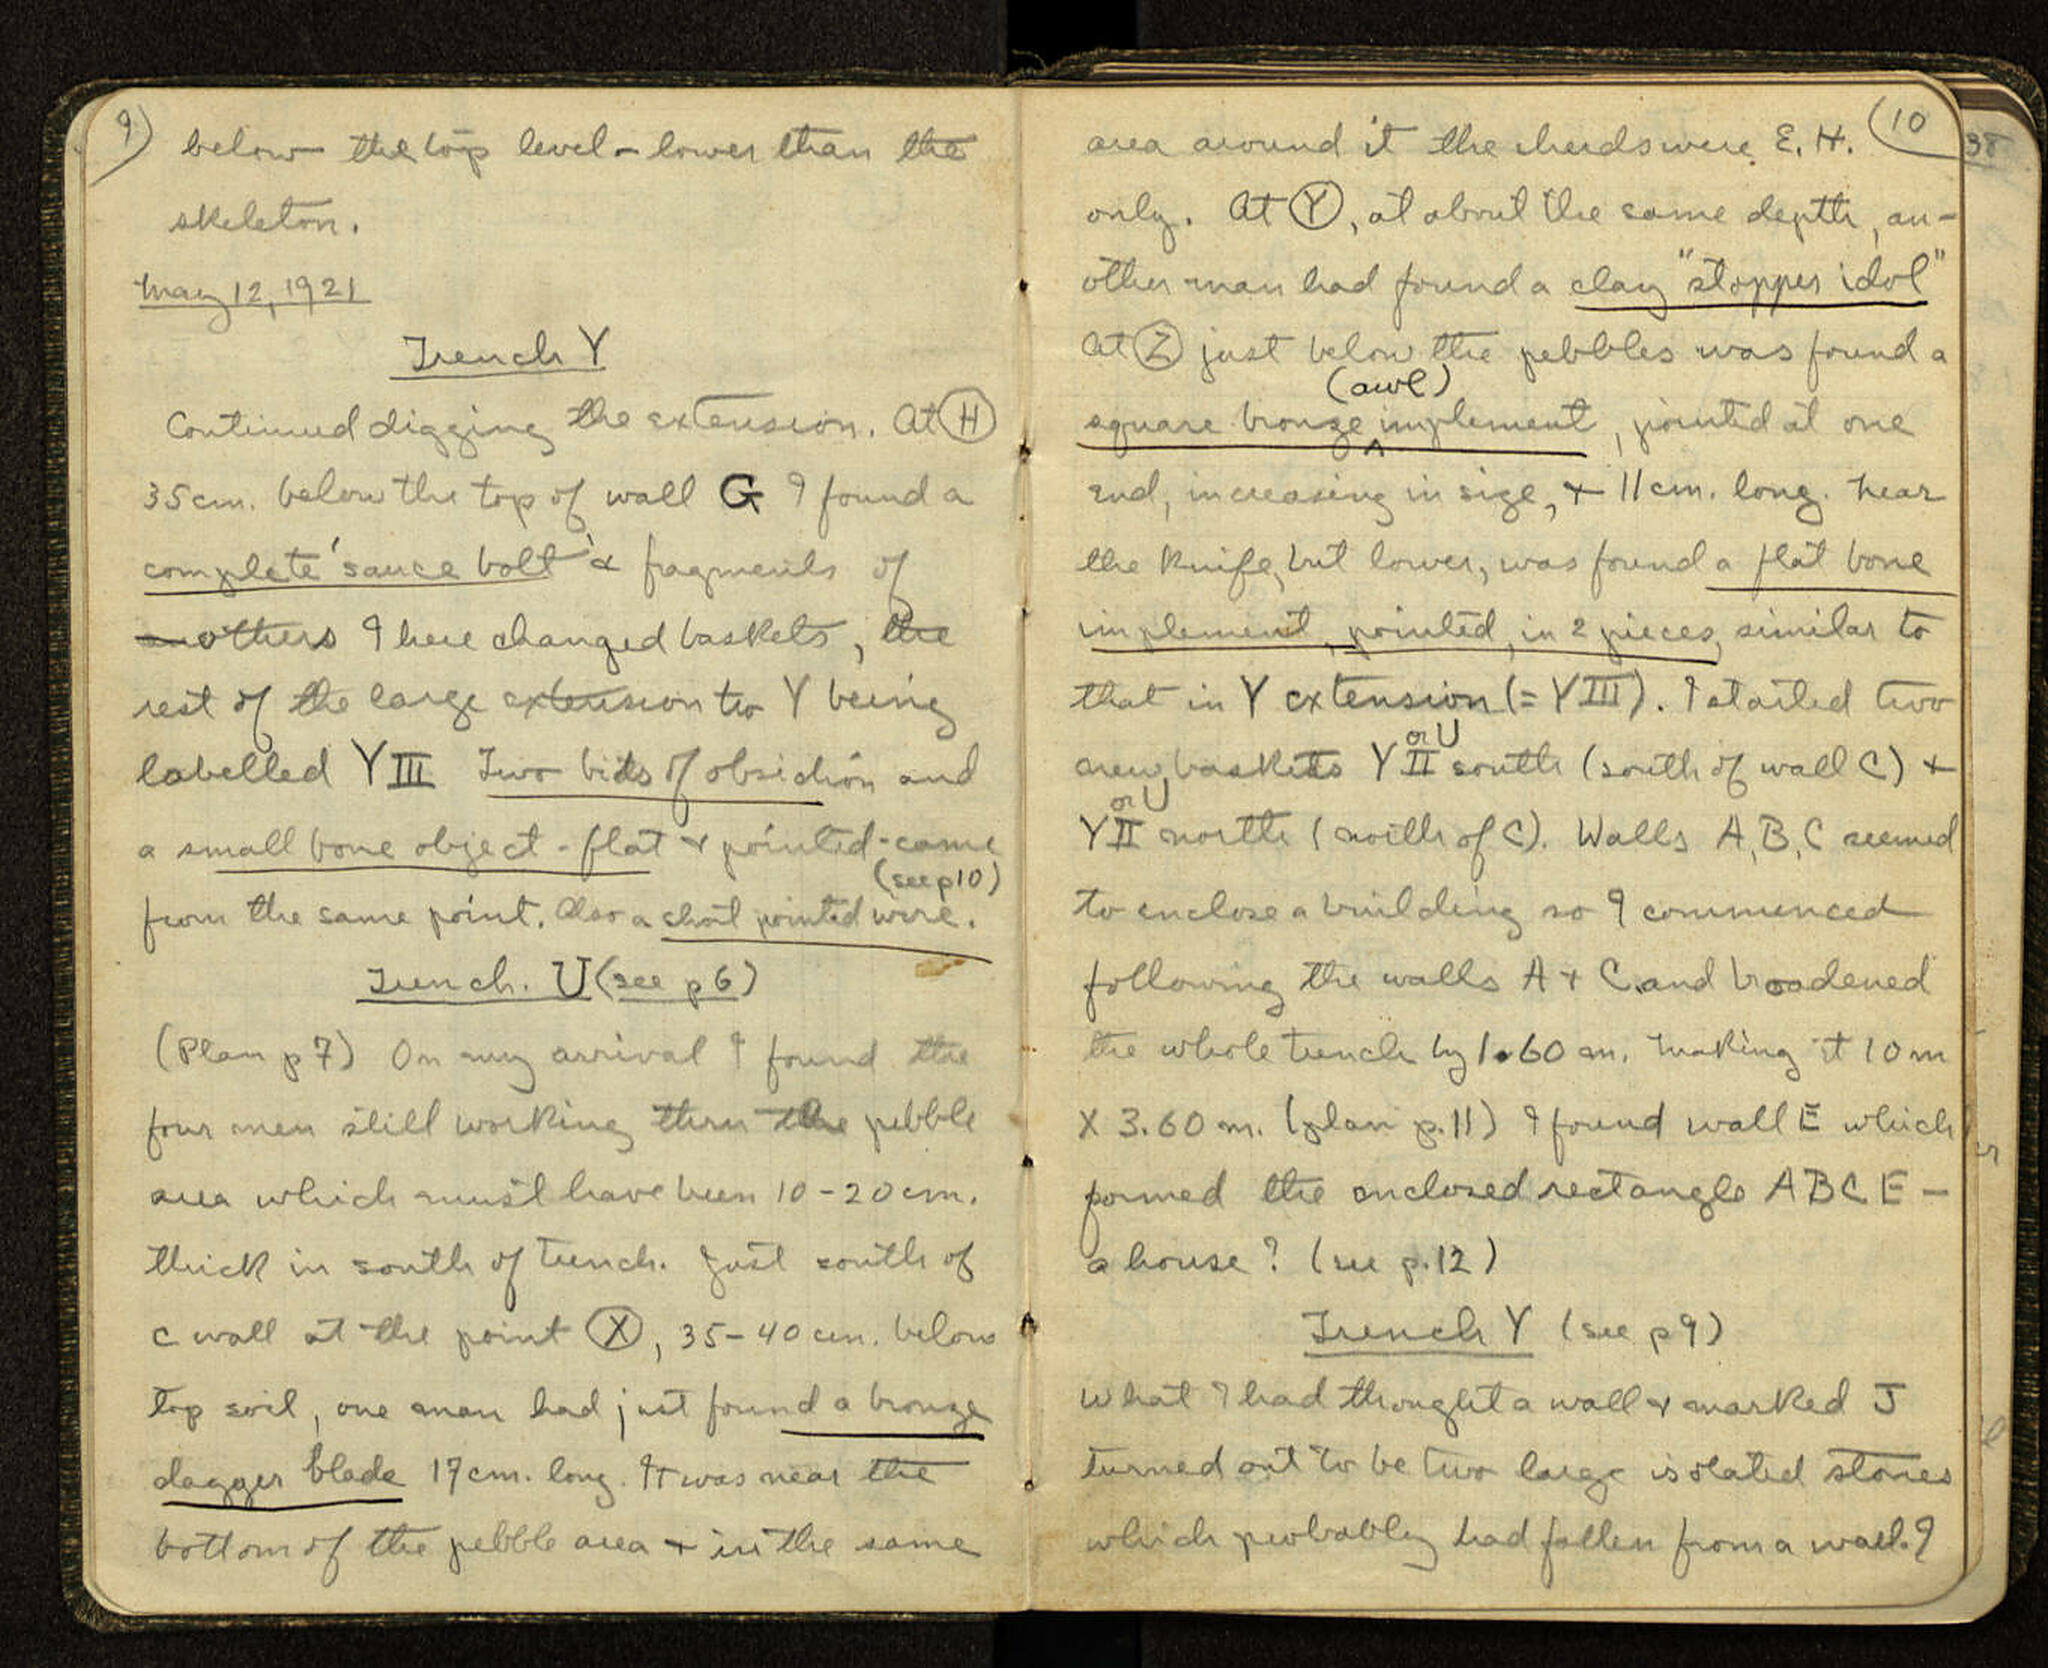 9)
below the top level - lower than the
skeleton.
May 12, 1921
Trench Y
Continued digging the extension. At (H)
35 cm. below the top of wall G I found a
complete 'sauce bolt' & fragments of
others I here changed baskets, the
rest of the large extension to Y being
labelled Y III Two bits of obsidian and
a small bone object - flat & pointed - came
(see p 10)
from the same point. Also a short pointed wire.
Trench. U (see p 6)
(Plan p 7) On my arrival I found the
four men still working thru the pebble
area which must have been 10-20 cm.
thick in south of trench. Just south of
C wall at the point (X), 35-40 cm. below
top soil, one man had just found a bronze
dagger blade 17 cm. long. It was near the
bottom of the pebble area & in the same
(10
area around it the sherds were E. H.
only. At (Y), at about the same depth, an-
other man had found a clay "stopper idol"
At (Z) just below the pebbles was found a
(awl)
square bronze ^ implement, pointed at one
end, increasing in size, & 11 cm. long. Near
the knife, but lower, was found a flat bone
implement, pointed, in 2 pieces, similar to
that in Y extension (= Y III). I started two
or U
new baskets Y II south (south of wall C) &
or U
Y II north (north of C). Walls A, B, C seemed
to enclose a building so I commenced
following the walls A & C and broadened
the whole trench by 1.60 m. making it 10 m
X 3.60 m. (plan p. 11) I found wall E which
formed the enclosed rectangle A B C E -
a house? (see p. 12)
Trench Y (see p 9)
What I had thought a wall & marked J
turned out to be two large isolated stones
which probably had fallen from a wall. I
38